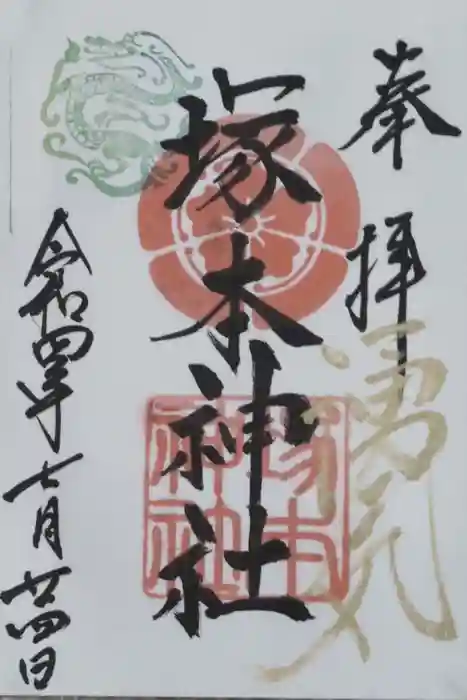 奉拝
塚本神社
令和四年七月廿四日
塚本
神社